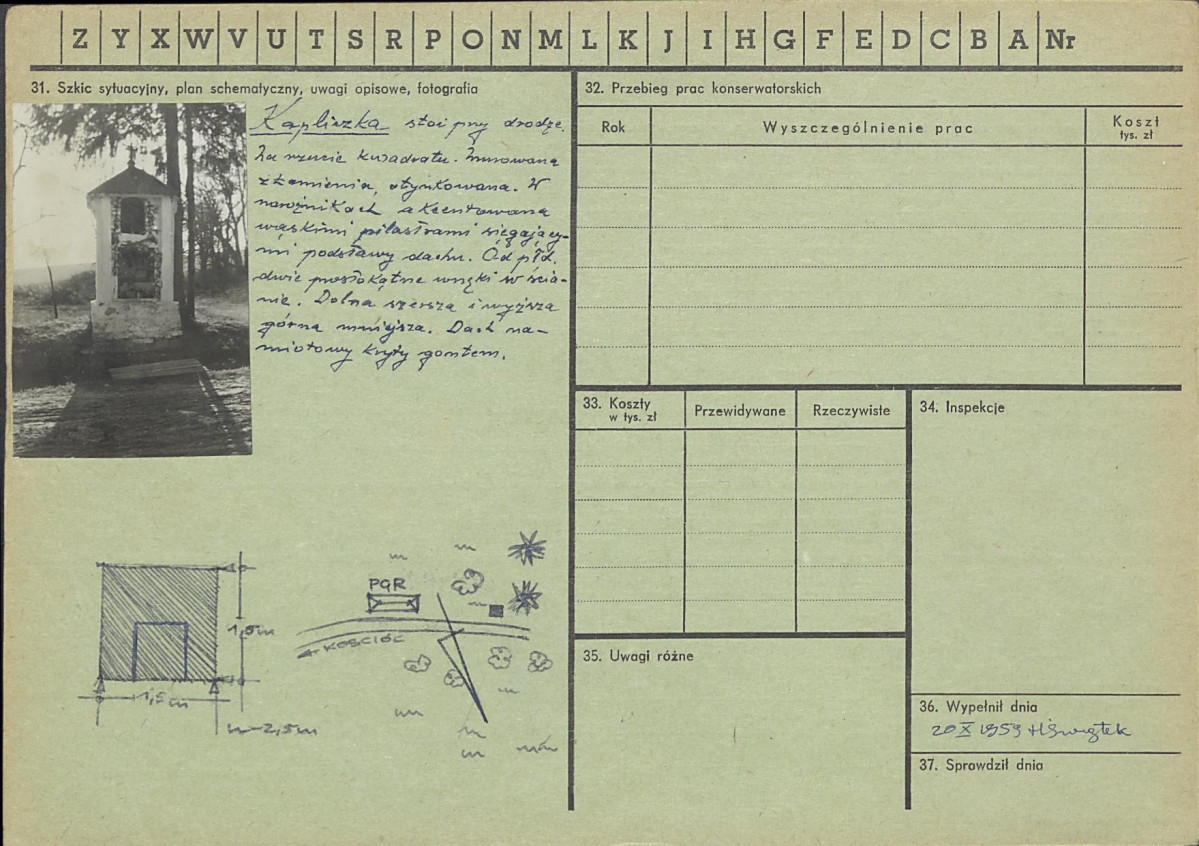 Z Y X W V U T S R P O N M L K J I H G F E D C B A Nr
31. Szkic sytuacyjny, plan schematyczny, uwagi opisowe, fotografia
Kapliczka stoi przy drodze.
Na rzucie kwadratu. Murowana
z kamienia, otynkowana. W
narożnikach akcentowana
wąskimi pilastrami sięgający-
mi podstawy dachu. Od płd.
dwie prostokątne wnęki w ścia-
nie. Dolna szersza i wyższa
górna mniejsza. Dach na-
miotowy kryty gontem.
1,5m
1,5m
h-2,5m
PGR
KOŚCIÓŁ
32. Przebieg prac konserwatorskich
Rok
Wyszczególnienie prac
Koszt
tys. zł
33. Koszty
w tys. zł
Przewidywane
Rzeczywiste
34. Inspekcje
35. Uwagi różne
36. Wypełnił dnia
20 X 1959 H Świątek
37. Sprawdził dnia